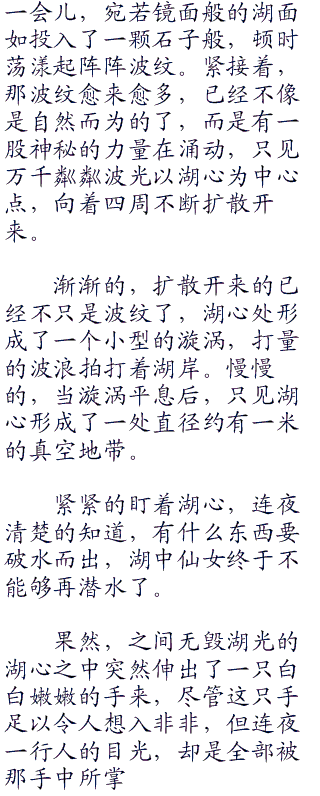 一会儿，宛若镜面般的湖面
如投入了一颗石子般，顿时
荡漾起阵阵波纹。紧接着，
那波纹愈来愈多，已经不像
是自然而为的了，而是有一
股神秘的力量在涌动，只见
万千粼粼波光以湖心为中心
点，向着四周不断扩散开
来。
渐渐的，扩散开来的已
经不只是波纹了，湖心处形
成了一个小型的漩涡，打量
的波浪拍打着湖岸。慢慢
的，当漩涡平息后，只见湖
心形成了一处直径约有一米
的真空地带。
紧紧的盯着湖心，连夜
清楚的知道，有什么东西要
破水而出，湖中仙女终于不
能够再潜水了。
果然，之间无毁湖光的
湖心之中突然伸出了一只白
白嫩嫩的手来，尽管这只手
足以令人想入非非，但连夜
一行人的目光，却是全部被
那手中所掌